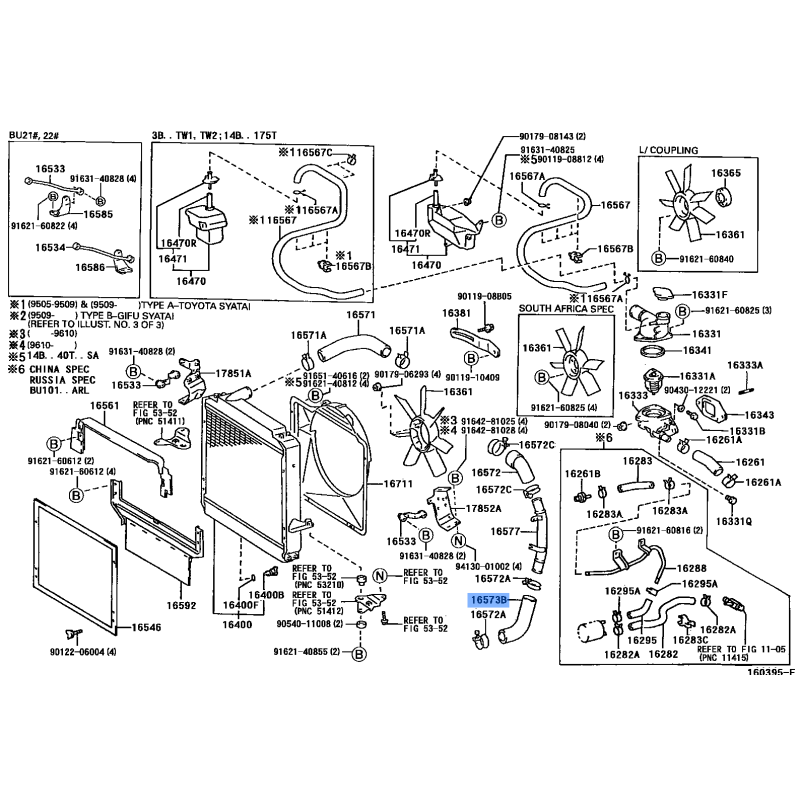 BU21#, 22#
16533
91631-40828 (4)
B
B
16585
91621-60822 (4)
16534
16586
3B.. TW1, TW2; 14B.. 175T
※116567C
※116567A
※116567
16470R
16471
16470
※1
16567B
90179-08143 (2)
91631-40825
※5 90119-08812 (4)
16567A
16567
B
16470R
16471
16470
16567B
※116567A
L/ COUPLING
16365
16361
B
91621-60840
※1 (9505-9509) & (9509- ) TYPE A-TOYOTA SYATAI
※2 (9509- ) TYPE B-GIFU SYATAI
(REFER TO ILLUST. NO. 3 OF 3)
※3 ( -9610)
※4 (9610- )
※5 14B.. 40T.. SA
※6 CHINA SPEC
RUSSIA SPEC
BU101.. ARL
90119-08B05
16381
B
90119-10409
SOUTH AFRICA SPEC
16361
B
91621-60825 (4)
16331F
B
91621-60825 (3)
16331
16341
16331A
16333A
90430-12221 (2)
16333
16343
16331B
90179-08040 (2)
16261A
16261
16261A
16331Q
16571
16571A
16571A
91631-40828 (2)
B
16533
17851A
91651-40616 (2)
※5 91621-40812 (4)
B
90179-06293 (4)
16361
※3 91642-81025 (4)
※4 91642-81028 (4)
B
16561
REFER TO
FIG 53-52
(PNC 51411)
B
91621-60612 (2)
91621-60612 (4)
B
16711
16572C
16572
16572C
17852A
16577
16533
B
91631-40828 (2)
N
94130-01002 (4)
16572A
16573B
16572A
REFER TO
FIG 53-52
(PNC 53210)
REFER TO
FIG 53-52
(PNC 51412)
N
REFER TO
FIG 53-52
90540-11008 (2)
REFER TO
FIG 53-52
91621-40855 (2)
B
16592
16400B
16400F
16400
16546
90122-06004 (4)
※6
16261B
16283
16283A
16283A
B
91621-60816 (2)
16288
16295A
16295A
16282A
16283C
16295
16282
16282A
REFER TO FIG 11-05
(PNC 11415)
160395-F